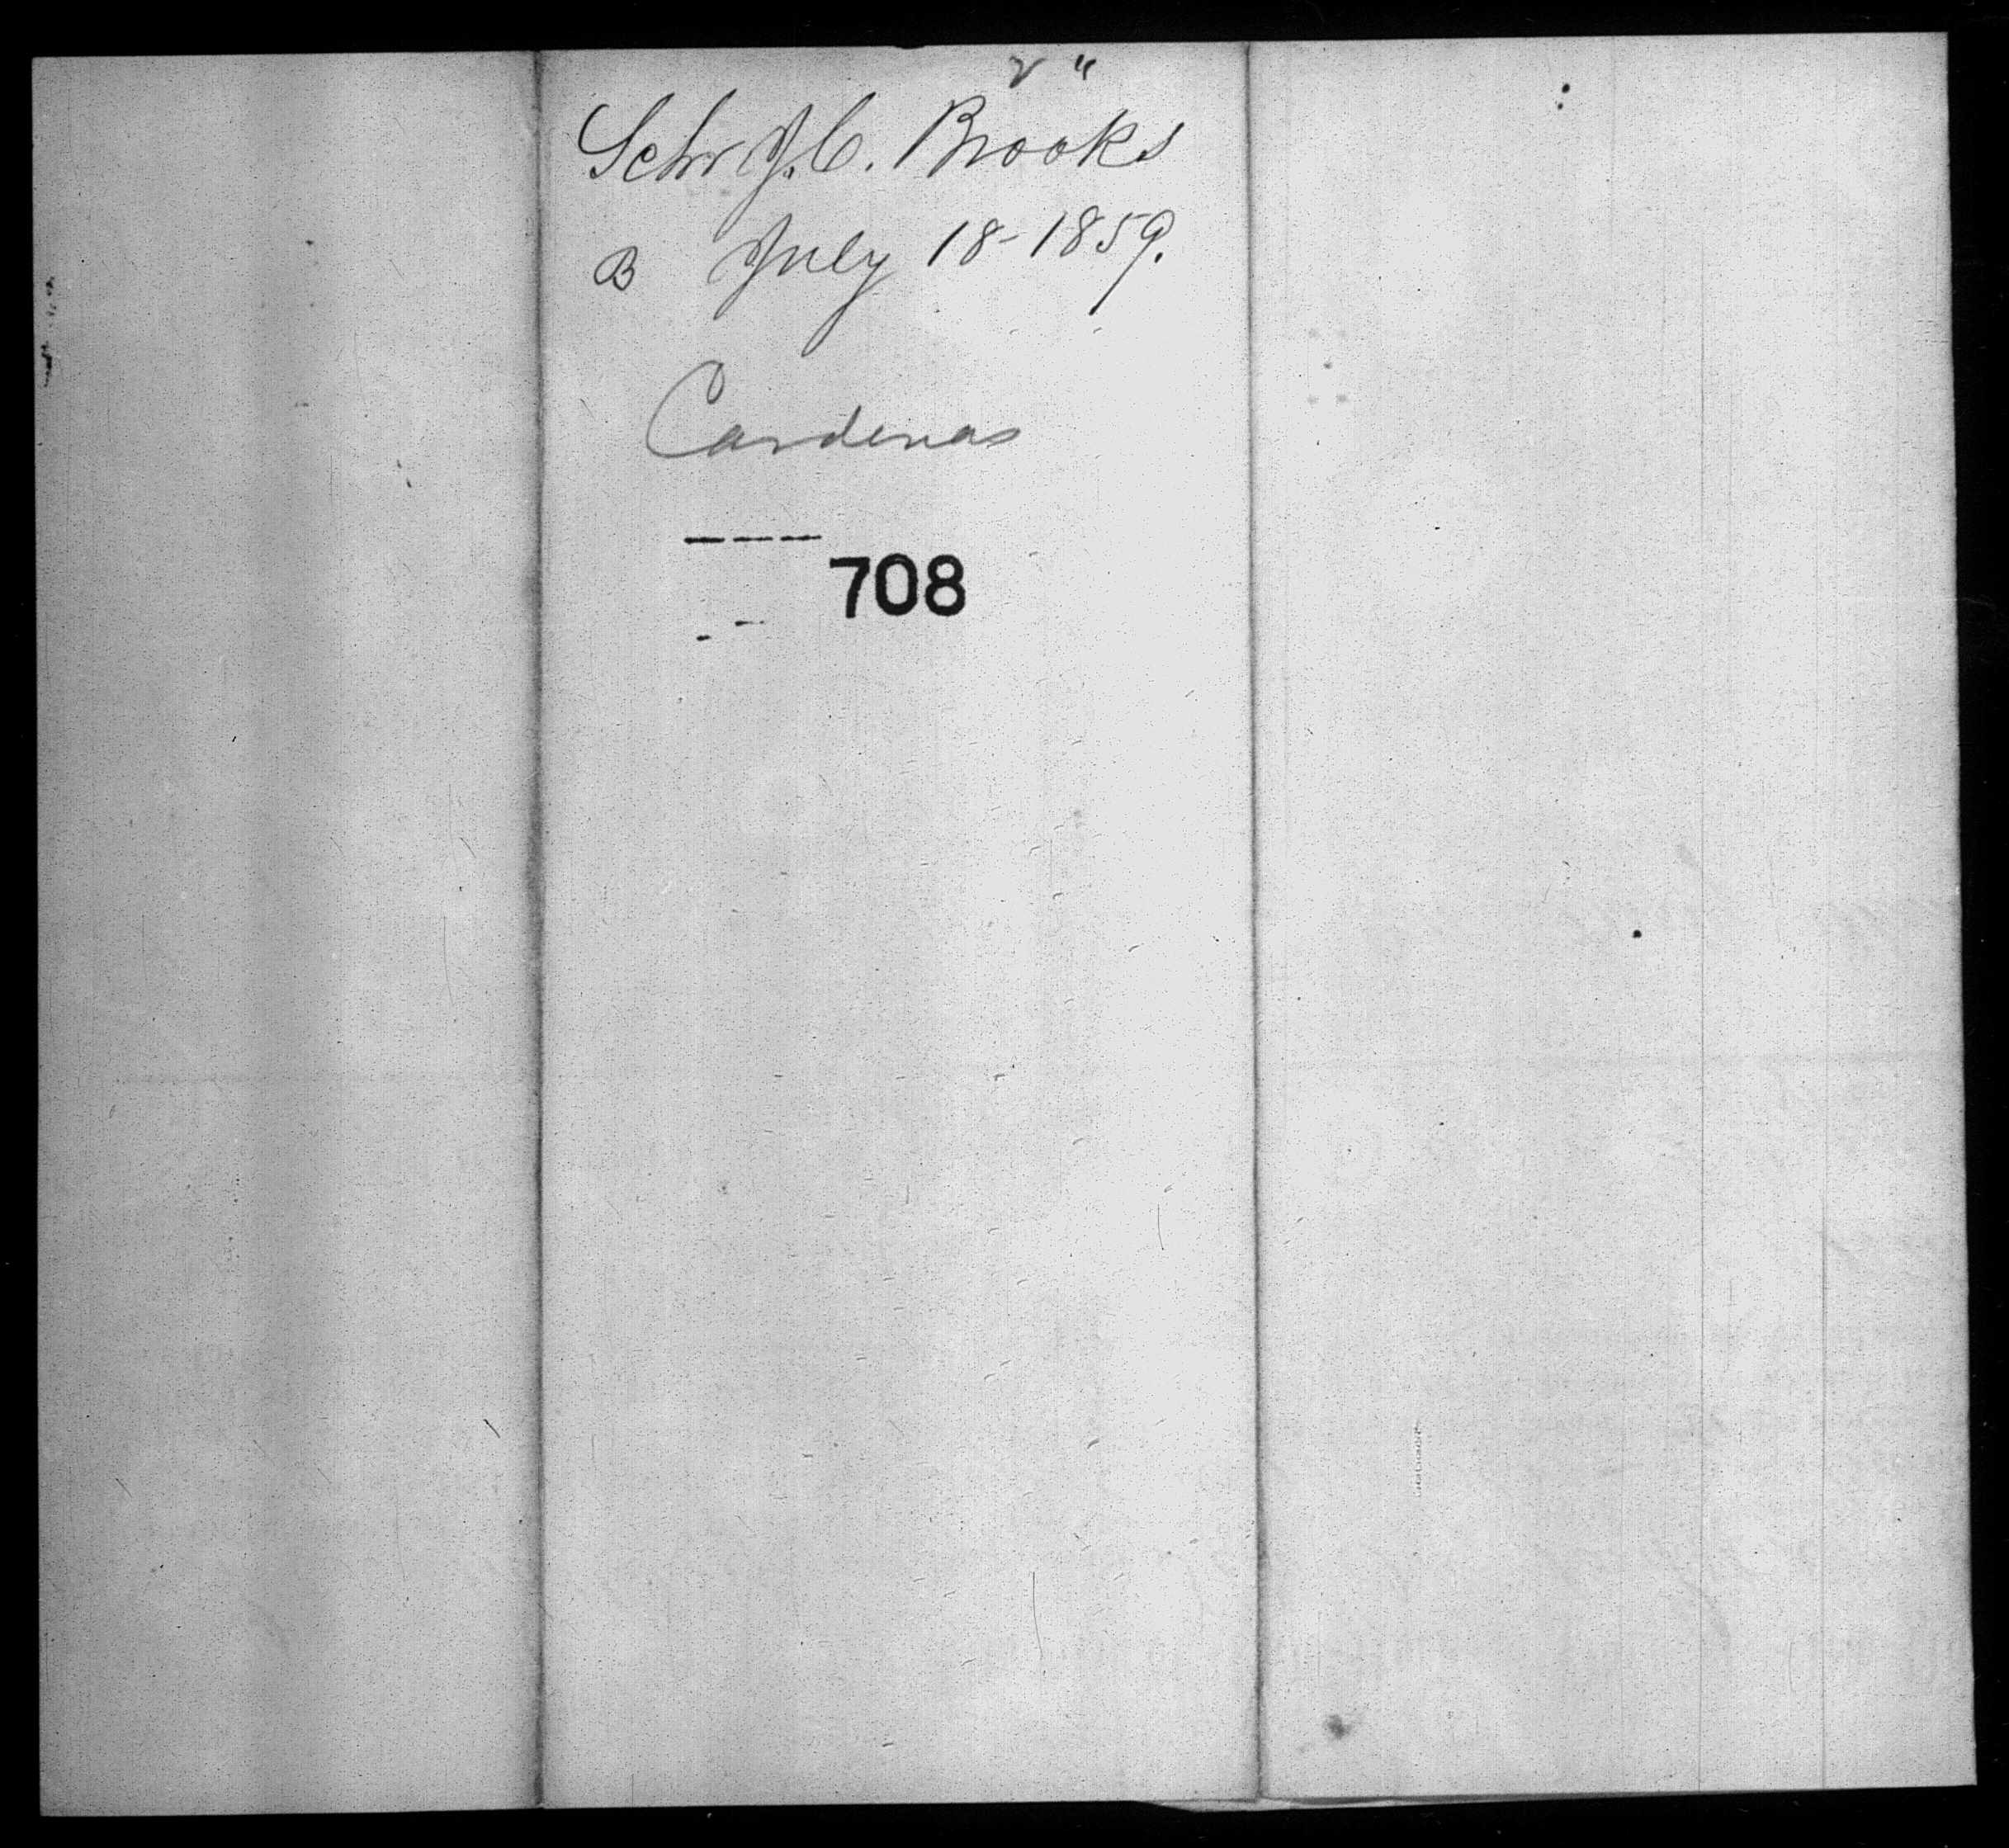 2 "
Schr J. C. Brooks
B July 18-1859.
Cardenas
708